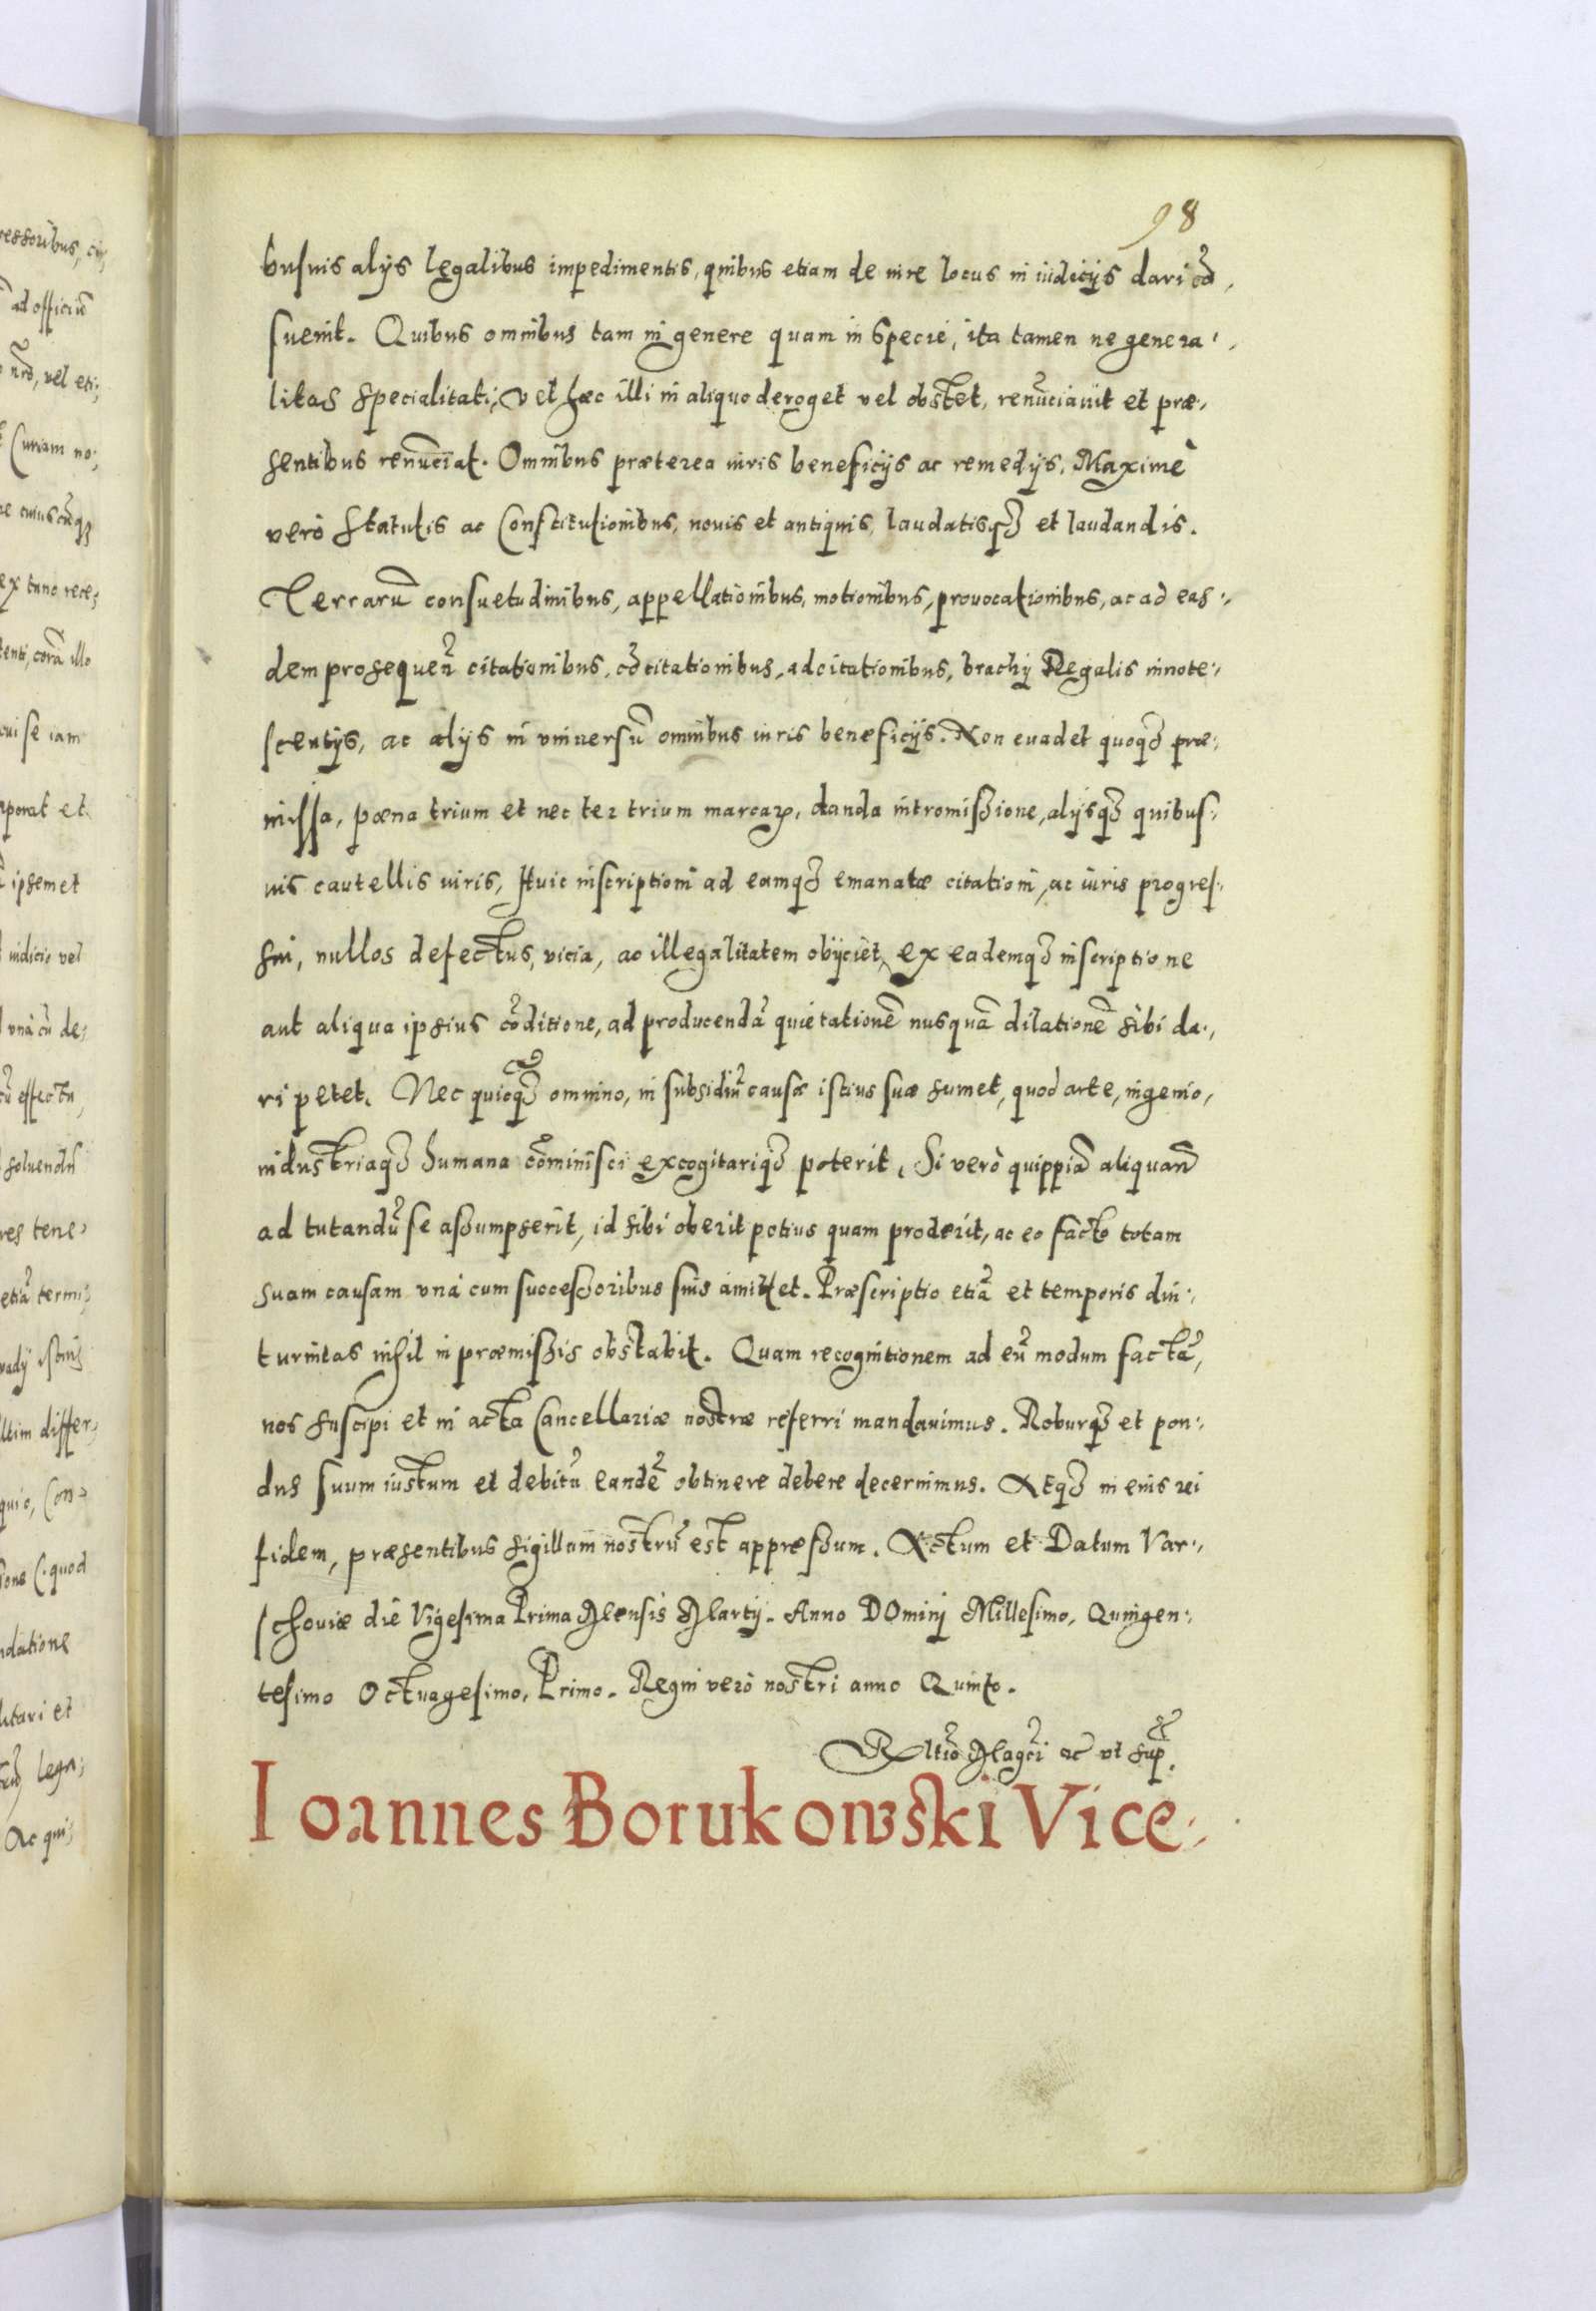 98
busuis alijs legalibus impedimentis, quibus etiam de iure locus in iudicijs dari cō,
suenit. Quibus omnibus tam in genere quam in specie, ita tamen ne genera,
litas specialitati, vel hæc illi in aliquo deroget vel obstet, renūciauit et præ,
sentibus renūciat. Omnibus præterea iuris beneficijs ac remedijs, Maximè
verò Statutis ac Constitutionibus, nouis et antiquis, laudatisq3 et laudandis.
Terrarū consuetudinibus, appellationibus, motionibus, prouocationibus, ac ad eas,
dem prosequeñ citationibus, cōcitationibus, adcitationibus, brachij Regalis innote,
scentijs, ac alijs in vniuersū omnibus iuris beneficijs. Non euadet quoq3 præ,
missa, pœna trium et nec ter trium marcaꝝ, danda intromissione, alijsq3 quibus,
uis cautellis iuris, Huic inscriptioni ad eamq3 emanatæ citationi, ac iuris progres,
sui, nullos defectus, vicia, ac illegalitatem obijciet, ex eademq3 inscriptione
aut aliqua ipsius cōditione, ad producendā quietationē nusquā dilationē sibi da,
ri petet. Nec quicq3 omnino, in subsidiū causæ istius suæ sumet, quod arte, ingenio,
industriaq3 humana cōminisci excogitariq3 poterit. Si verò quippiā aliquañ
ad tutandū se assumpserit, id sibi oberit potius quam proderit, ac eo facto totam
suam causam vnà cum successoribus suis amittet. Præscriptio etiā et temporis diu,
turnitas nihil in præmissis obstabit. Quam recognitionem ad eū modum factā,
nos suscipi et in acta Cancellariæ nostræ referri mandauimus. Roburq3 et pon,
dus suum iustum et debitū eandē obtinere debere decernimus. Atq3 in eius rei
fidem, præsentibus sigillum nostrū est appressum. Actum et Datum Var,
schouiæ die Vigesima Prima Mensis Martij. Anno DOmini Millesimo, Quingen,
tesimo Octuagesimo, Primo. Regni verò nostri anno Quinto.
Rltiō Magci ac vt sup.
Ioannes Borukowski Vice,